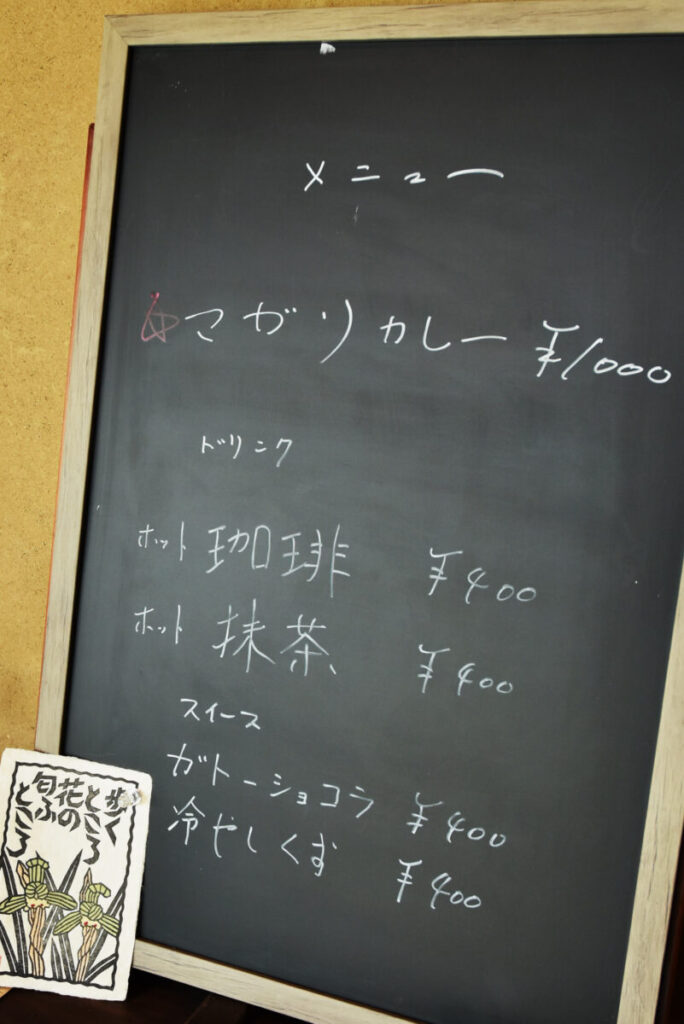 メニュー
☆マガリカレー ¥1000
ドリンク
ホット 珈琲 ¥400
ホット 抹茶 ¥400
スイース
ガトーショコラ ¥400
冷やしくず ¥400
歩く
ところ
花の
匂ふ
ところ